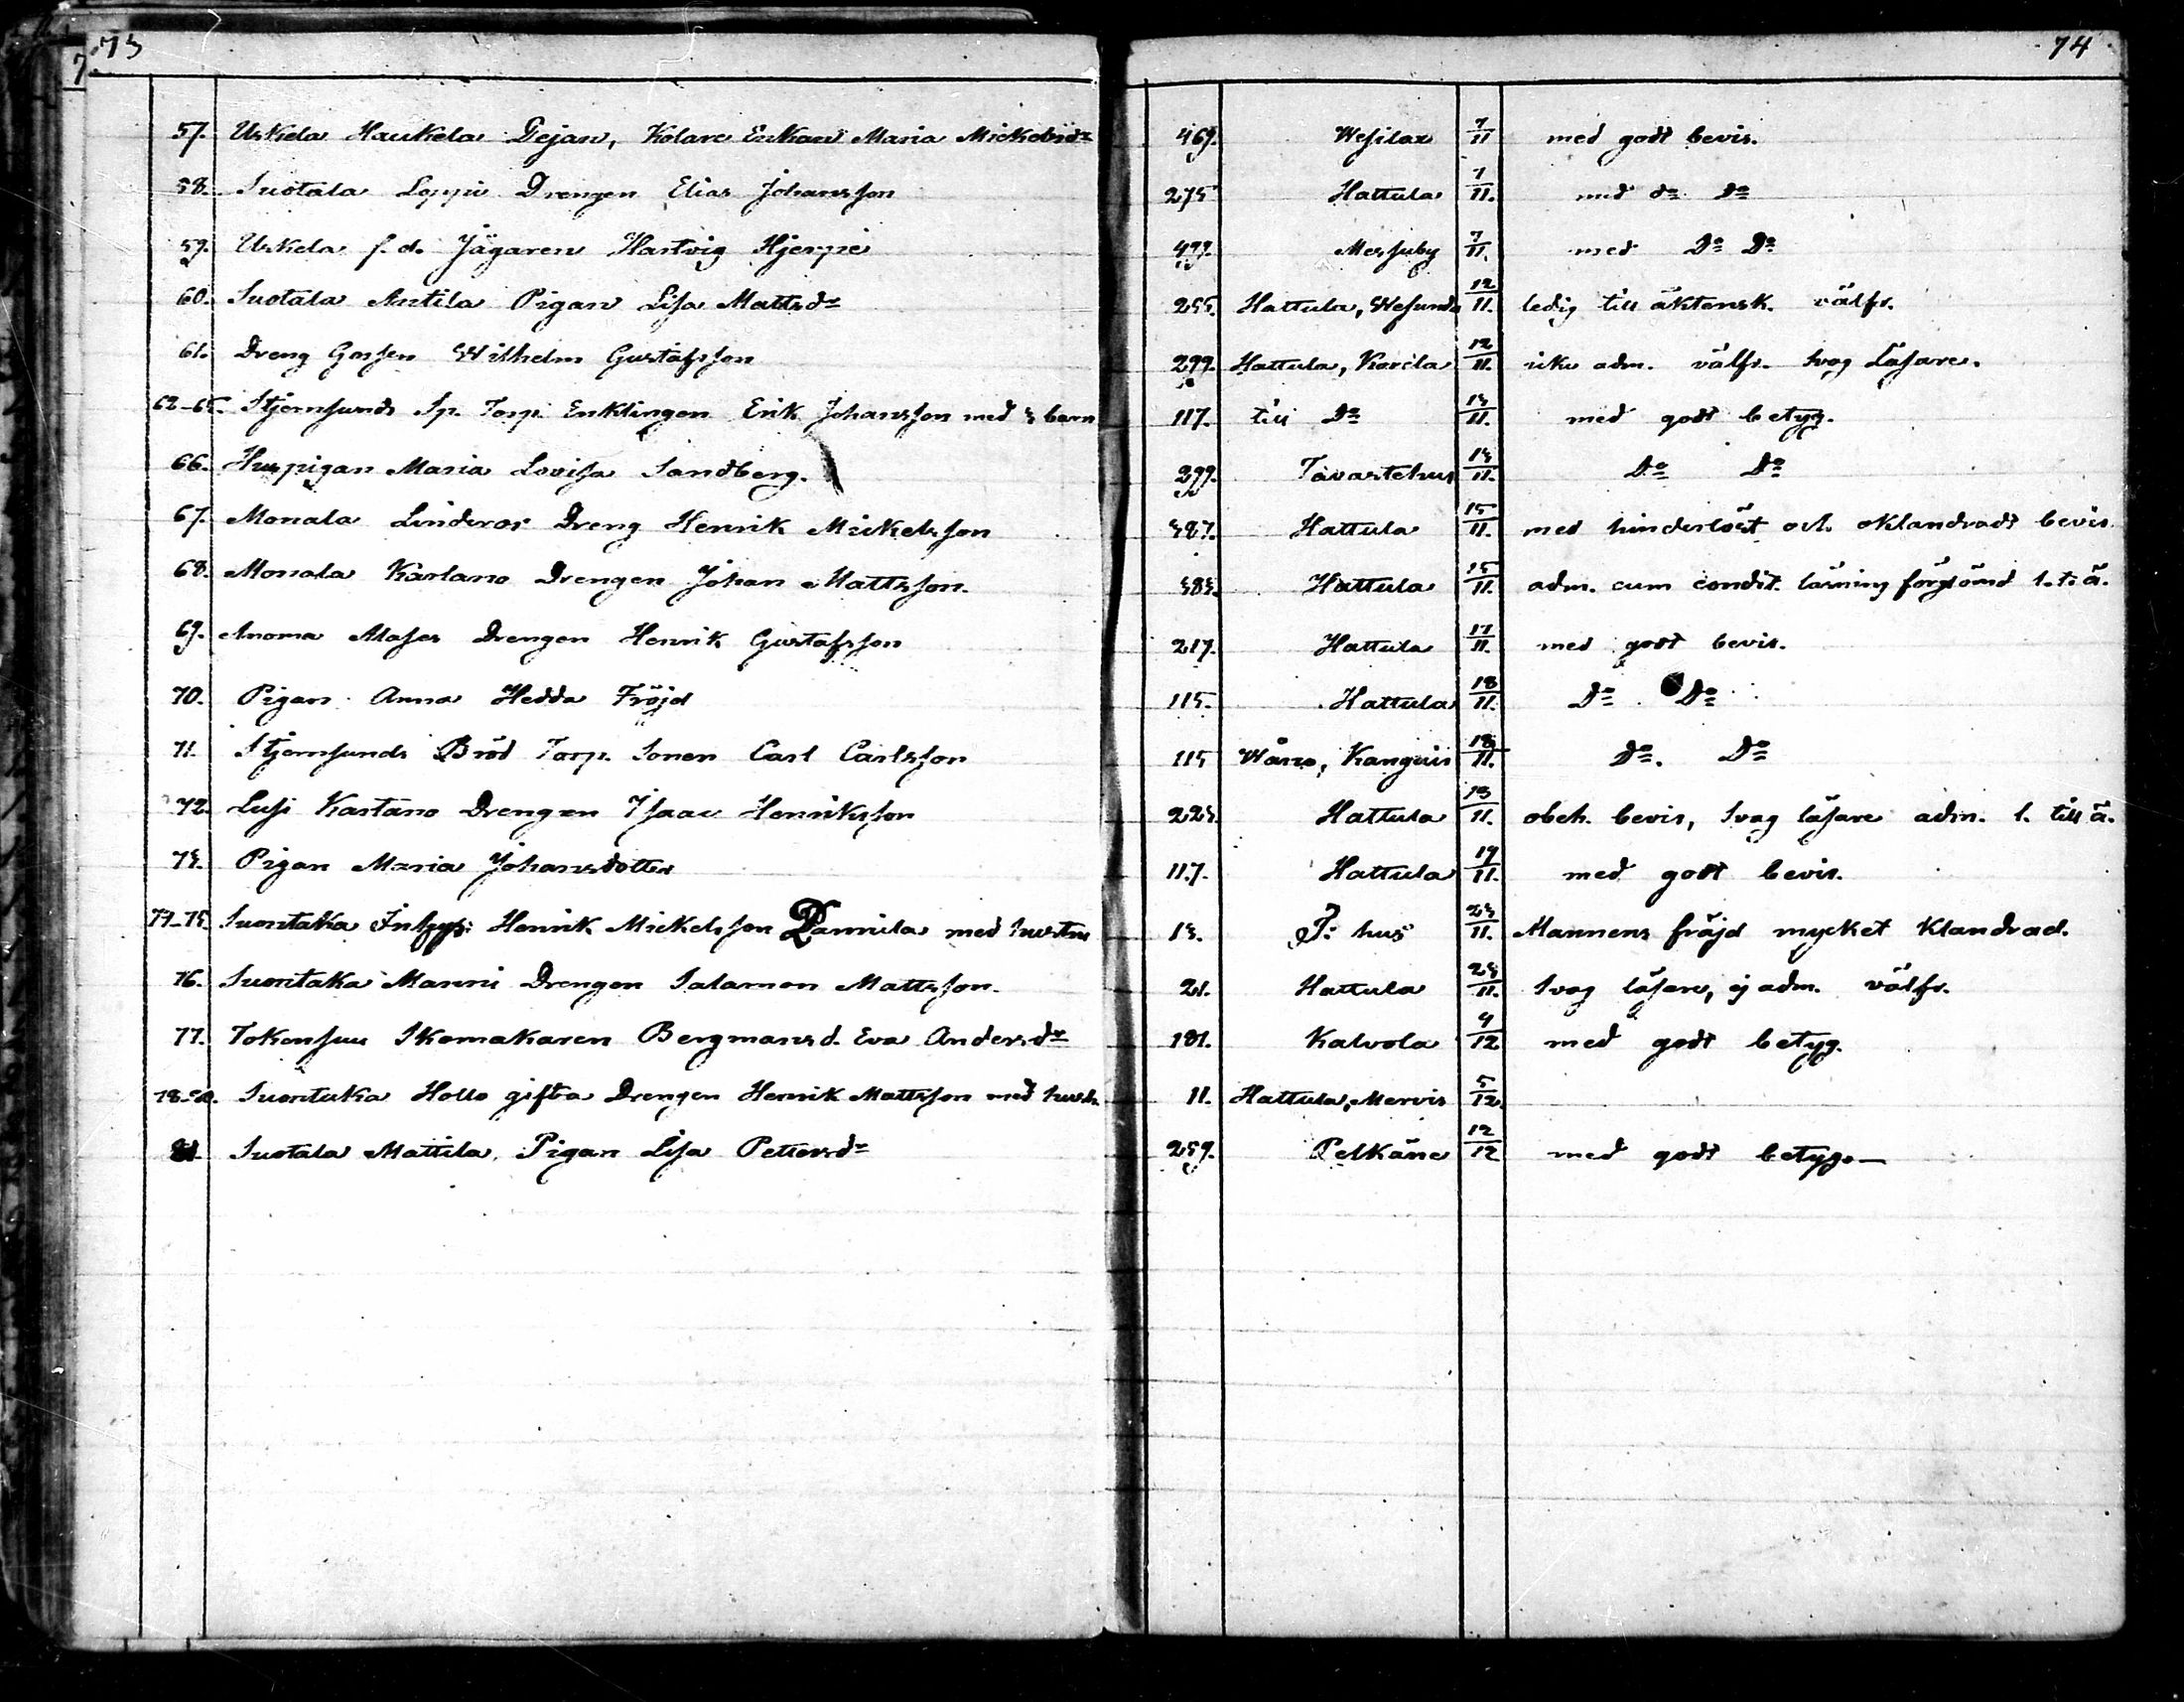 73
74
57. Uskela Haukela Dejan, Kolare Enkan Maria Mickelsdr 469. Wesilax 7/11 med godt bevis.
58. Suotala Loppi Drengen Elias Johansson 275 Hattula 7/11. med do Do
59. Uskela f. d. Jägaren Hartvig Hjerpe 499. Messuby 7/11. med Do Do
60. Suotala Antila Pigan Lisa Mattsdr 255. Hattula, Wesunda 12/11. ledig till äktensk. välfr.
61. Dreng Gossen Wilhelm Gustafsson 299. Hattula, Karila 12/11. icke adm. välfr. svag läsare.
62-65. Stjernsunds Sp. Torp. Enklingen Erik Johansson med 3 barn 117. till Do 13/11. med godt betyg.
66. Huspigan Maria Lovisa Sandberg. 299. Tavastehus 13/11. Do Do
67. Monala Linderos Dreng Henrik Mickelsson 387. Hattula 15/11. med hinderlöst och oklandradt bevis.
68. Monala Kartano Drengen Johan Mattsson. 383. Hattula 15/11. adm. cum condit. läsning förglömd l. t. ä.
69. Anoma Drengen Henrik Gustafsson 217. Hattula 17/11. med godt bevis.
70. Pigan Anna Hedda Fröjd 115. Hattula 18/11. Do Do
71. Stjernsunds Bröd Torp. Sonen Carl Carlsson 115 Wåno, Kangais 18/11. Do. Do
72. Lusi Kartano Drengen Isaac Henriksson 223. Hattula 19/11. obeh. bevis, svag läsare adm. l. till ä.
73. Pigan Maria Johansdotter 117. Hattula 19/11. med godt bevis.
74-75. Suontaka Inhys: Henrik Mickelsson Pannila med hustru 13. T: hus 23/11. Mannens fräjd mycket klandrad.
76. Suontaka Manni Drengen Salamon Mattsson. 21. Hattula 23/11. Svag läsare, ej adm. välfr.
77. Tokensuu Skomakaren Bergmansd. Eva Andersdr 181. Kalvola 4/12 med godt betyg.
78-80. Suontaka Hollo gifta Drengen Henrik Mattsson med hustr. 11. Hattula, Mervis 5/12.
81. Suotala Mattila, Pigan Lisa Pettersdr 259. Pelkäne 12/12 med godt betyg.—